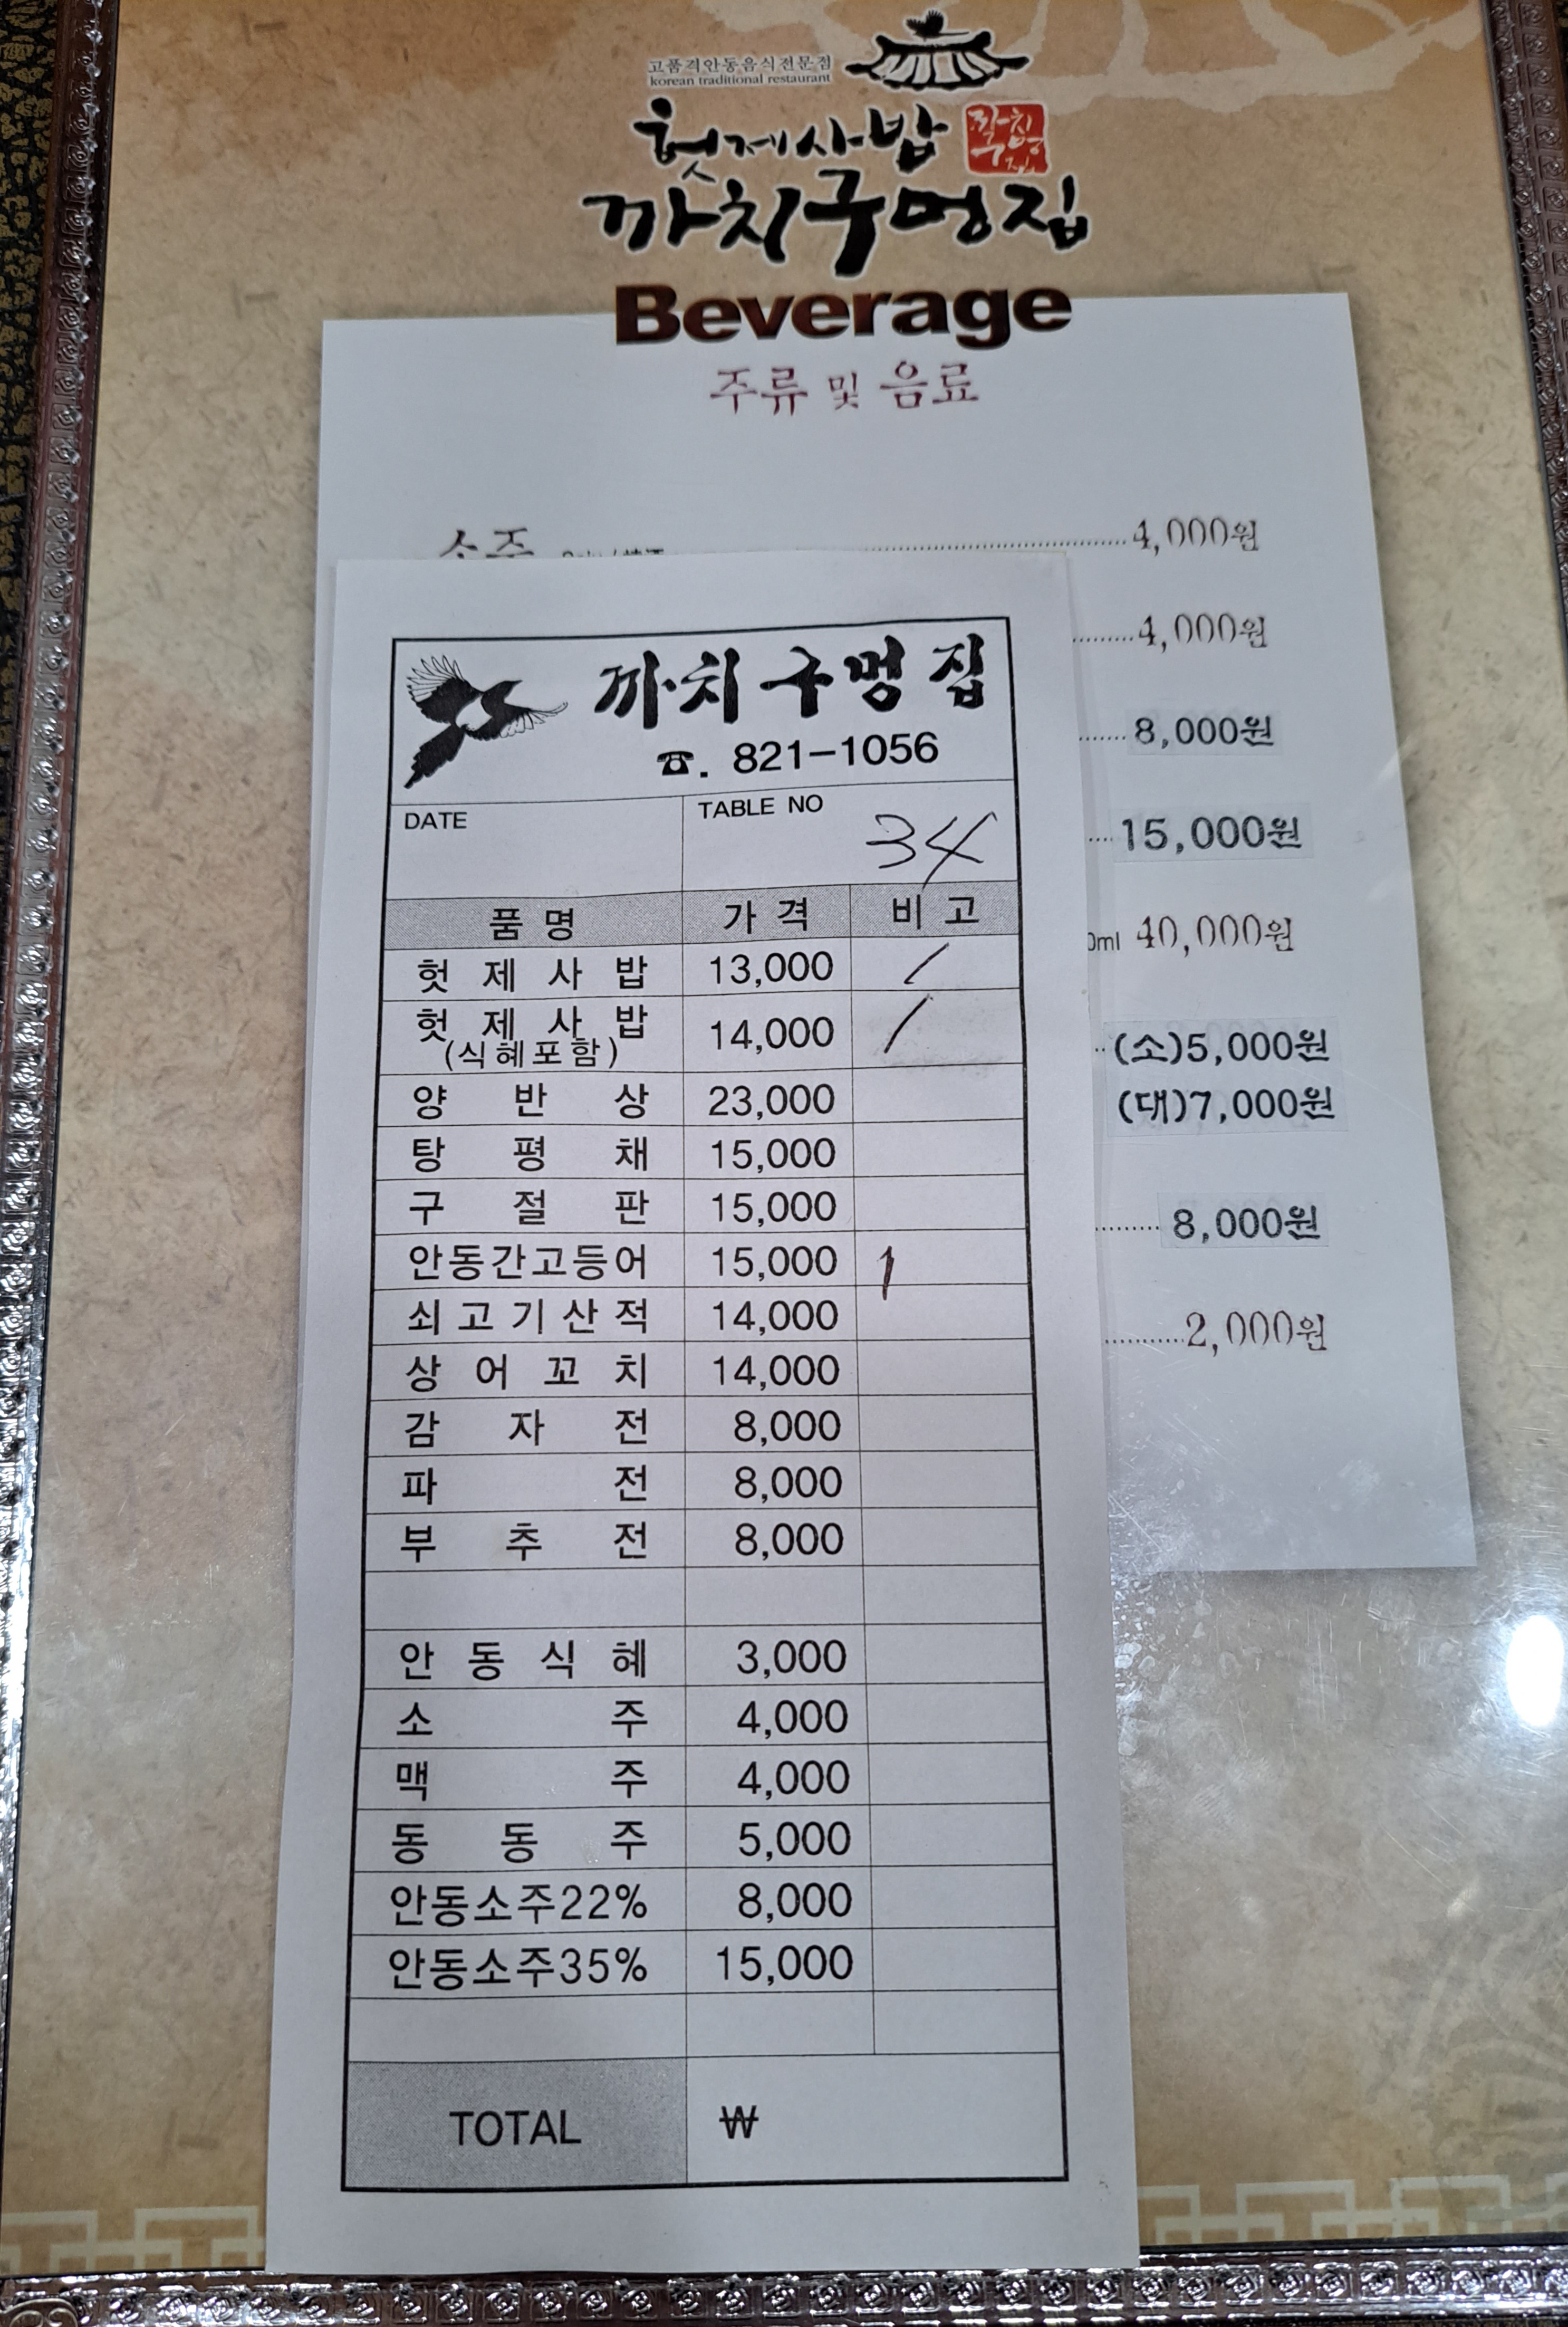 고품격안동음식전문점
korean traditional restaurant
헛제사밥
까치구멍집
Beverage
주류 및 음료
소주 4,000원
4,000원
8,000원
15,000원
0ml 40,000원
(소)5,000원
(대)7,000원
8,000원
2,000원
까치구멍집
☎. 821-1056
DATE TABLE NO 34
품명 가격 비고
헛제사밥 13,000 /
헛제사밥 (식혜포함) 14,000 /
양반상 23,000
탕평채 15,000
구절판 15,000
안동간고등어 15,000 1
쇠고기산적 14,000
상어꼬치 14,000
감자전 8,000
파전 8,000
부추전 8,000
안동식혜 3,000
소주 4,000
맥주 4,000
동동주 5,000
안동소주22% 8,000
안동소주35% 15,000
TOTAL ₩